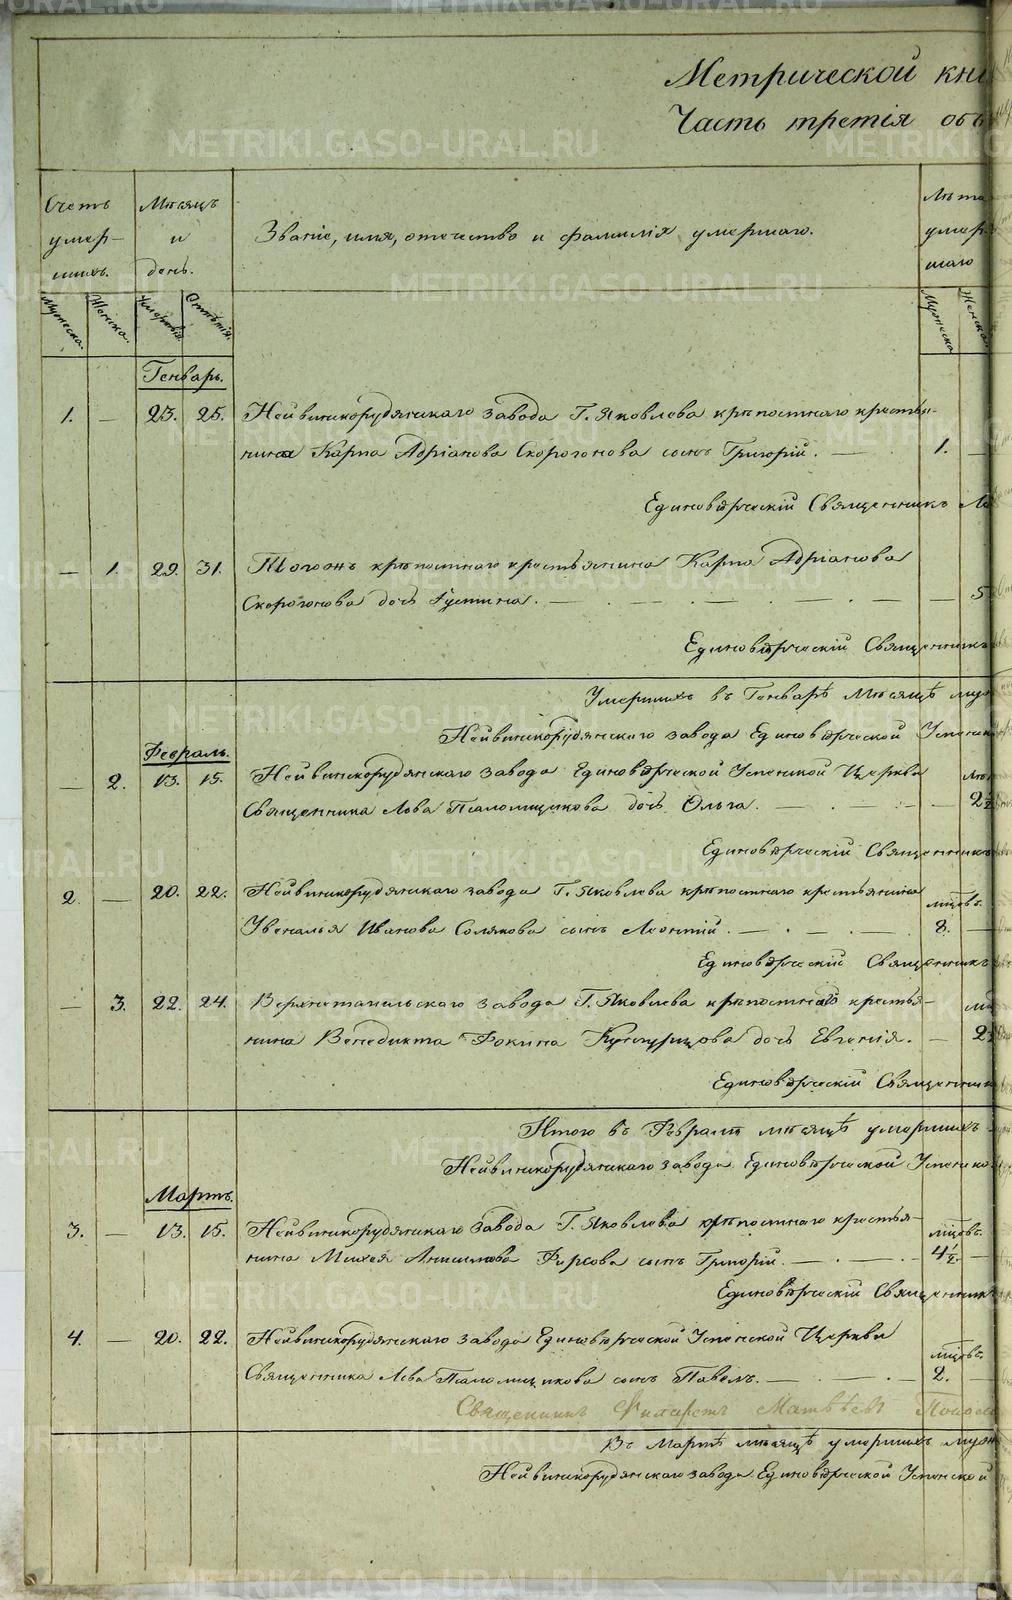 METRIKI.GASO-URAL.RU
Метрической кни
Часть третія объ
Счетъ умер-шихъ.
Мѣсяцъ и день.
Званіе, имя, отчество и фамилія умершаго.
Лѣта умер-шаго
Мужеска.
Женска.
Умертвія
Отпѣтія.
Мужеска
Женска.
Генварь.
1. — 23. 25. Нейвинскорудянскаго завода Г. Яковлева крѣпостнаго крестья-
нина Карпа Адріанова Скорогонова сынъ Григорій. — 1. —
Единовѣрческій Священникъ
— 1. 29. 31. Тогожъ крѣпостнаго крестьянина Карпа Адріанова
Скорогонова дочь Іустина. — 5
Единовѣрческій Священникъ
Умершихъ въ Генварѣ Мѣсяцѣ муж
Нейвинскорудянскаго завода Единовѣрческой Успенск
Февраль.
— 2. 13. 15. Нейвинскорудянскаго завода Единовѣрческой Успенской Церкви
Священника Льва Паломщикова дочь Ольга. — 2½
Единовѣрческій Священникъ
2. — 20. 22. Нейвинскорудянскаго завода Г. Яковлева крѣпостнаго крестьянина мѣсцовъ.
Увеналья Иванова Солякова сынъ Леонтій. — 8. —
Единовѣрческій Священникъ
— 3. 22. 24. Верхнетагильскаго завода Г. Яковлева крѣпостнаго крестья-
нина Венедикта Фокина дочь Евгенія. — 2
Единовѣрческій Священник
Итого въ Февралѣ мѣсяцѣ умершихъ
Нейвинскорудянскаго завода Единовѣрческой Успенско
Мартъ.
3. — 13. 15. Нейвинскорудянскаго завода Г. Яковлева крѣпостнаго крестья- мѣсцовъ.
нина Михея Анисимова Фирсова сынъ Григорій. — 4½. —
Единовѣрческій Священник
4. — 20. 22. Нейвинскорудянскаго завода Единовѣрческой Успенской Церкви мѣсцовъ.
Священника Льва Паломщикова сынъ Павелъ. — 2. —
Священникъ Филаретъ Матвѣевъ
Въ Мартѣ мѣсяцѣ умершихъ муж
Нейвинскорудянскаго завода Единовѣрческой Успенской